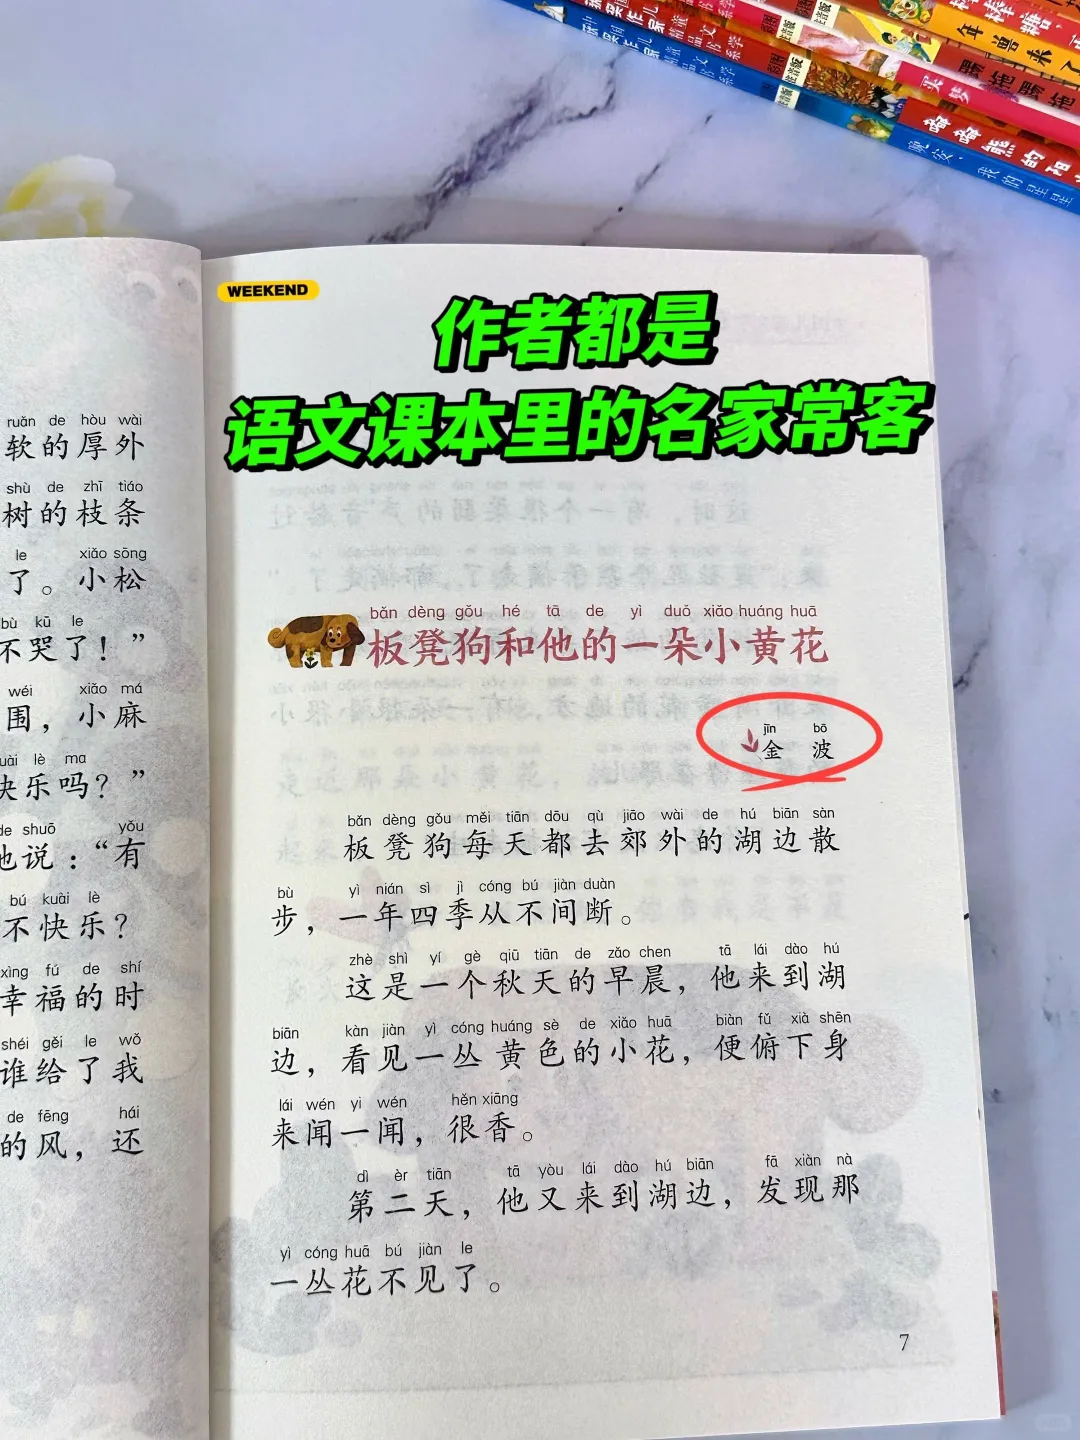 WEEKEND
作者都是
语文课本里的名家常客
年兽来了
晚安，我的星星
ruǎn de hòu wài
软的厚外
shù de zhī tiáo
树的枝条
le xiǎo sōng
了。小松
bù kū le
不哭了！”
wéi xiǎo má
围，小麻
kuài lè ma
快乐吗？”
de shuō yǒu
他说：“有
bú kuài lè
不快乐？
xìng fú de shí
幸福的时
shéi gěi le wǒ
谁给了我
de fēng hái
的风，还
bǎn dèng gǒu hé tā de yì duǒ xiǎo huáng huā
板凳狗和他的一朵小黄花
jīn bō
金波
bǎn dèng gǒu měi tiān dōu qù jiāo wài de hú biān sàn
板凳狗每天都去郊外的湖边散
bù yì nián sì jì cóng bú jiàn duàn
步，一年四季从不间断。
zhè shì yí gè qiū tiān de zǎo chen tā lái dào hú
这是一个秋天的早晨，他来到湖
biān kàn jiàn yì cóng huáng sè de xiǎo huā biàn fǔ xià shēn
边，看见一丛黄色的小花，便俯下身
lái wén yi wén hěn xiāng
来闻一闻，很香。
dì èr tiān tā yòu lái dào hú biān fā xiàn nà
第二天，他又来到湖边，发现那
yì cóng huā bú jiàn le
一丛花不见了。
7